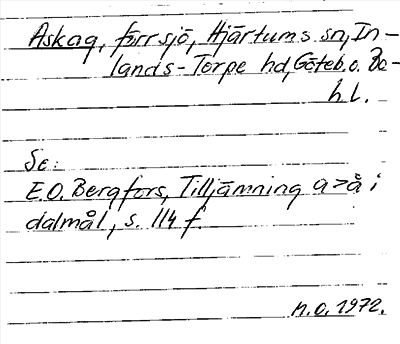 Askag, förr sjö, Hjärtums sn, In-
lands-Torpe hd, Göteb. o. Bo-
h. l.
Se:
E.O. Bergfors, Tilljämning a>å i
dalmål, s. 114 f.
n.o. 1972.